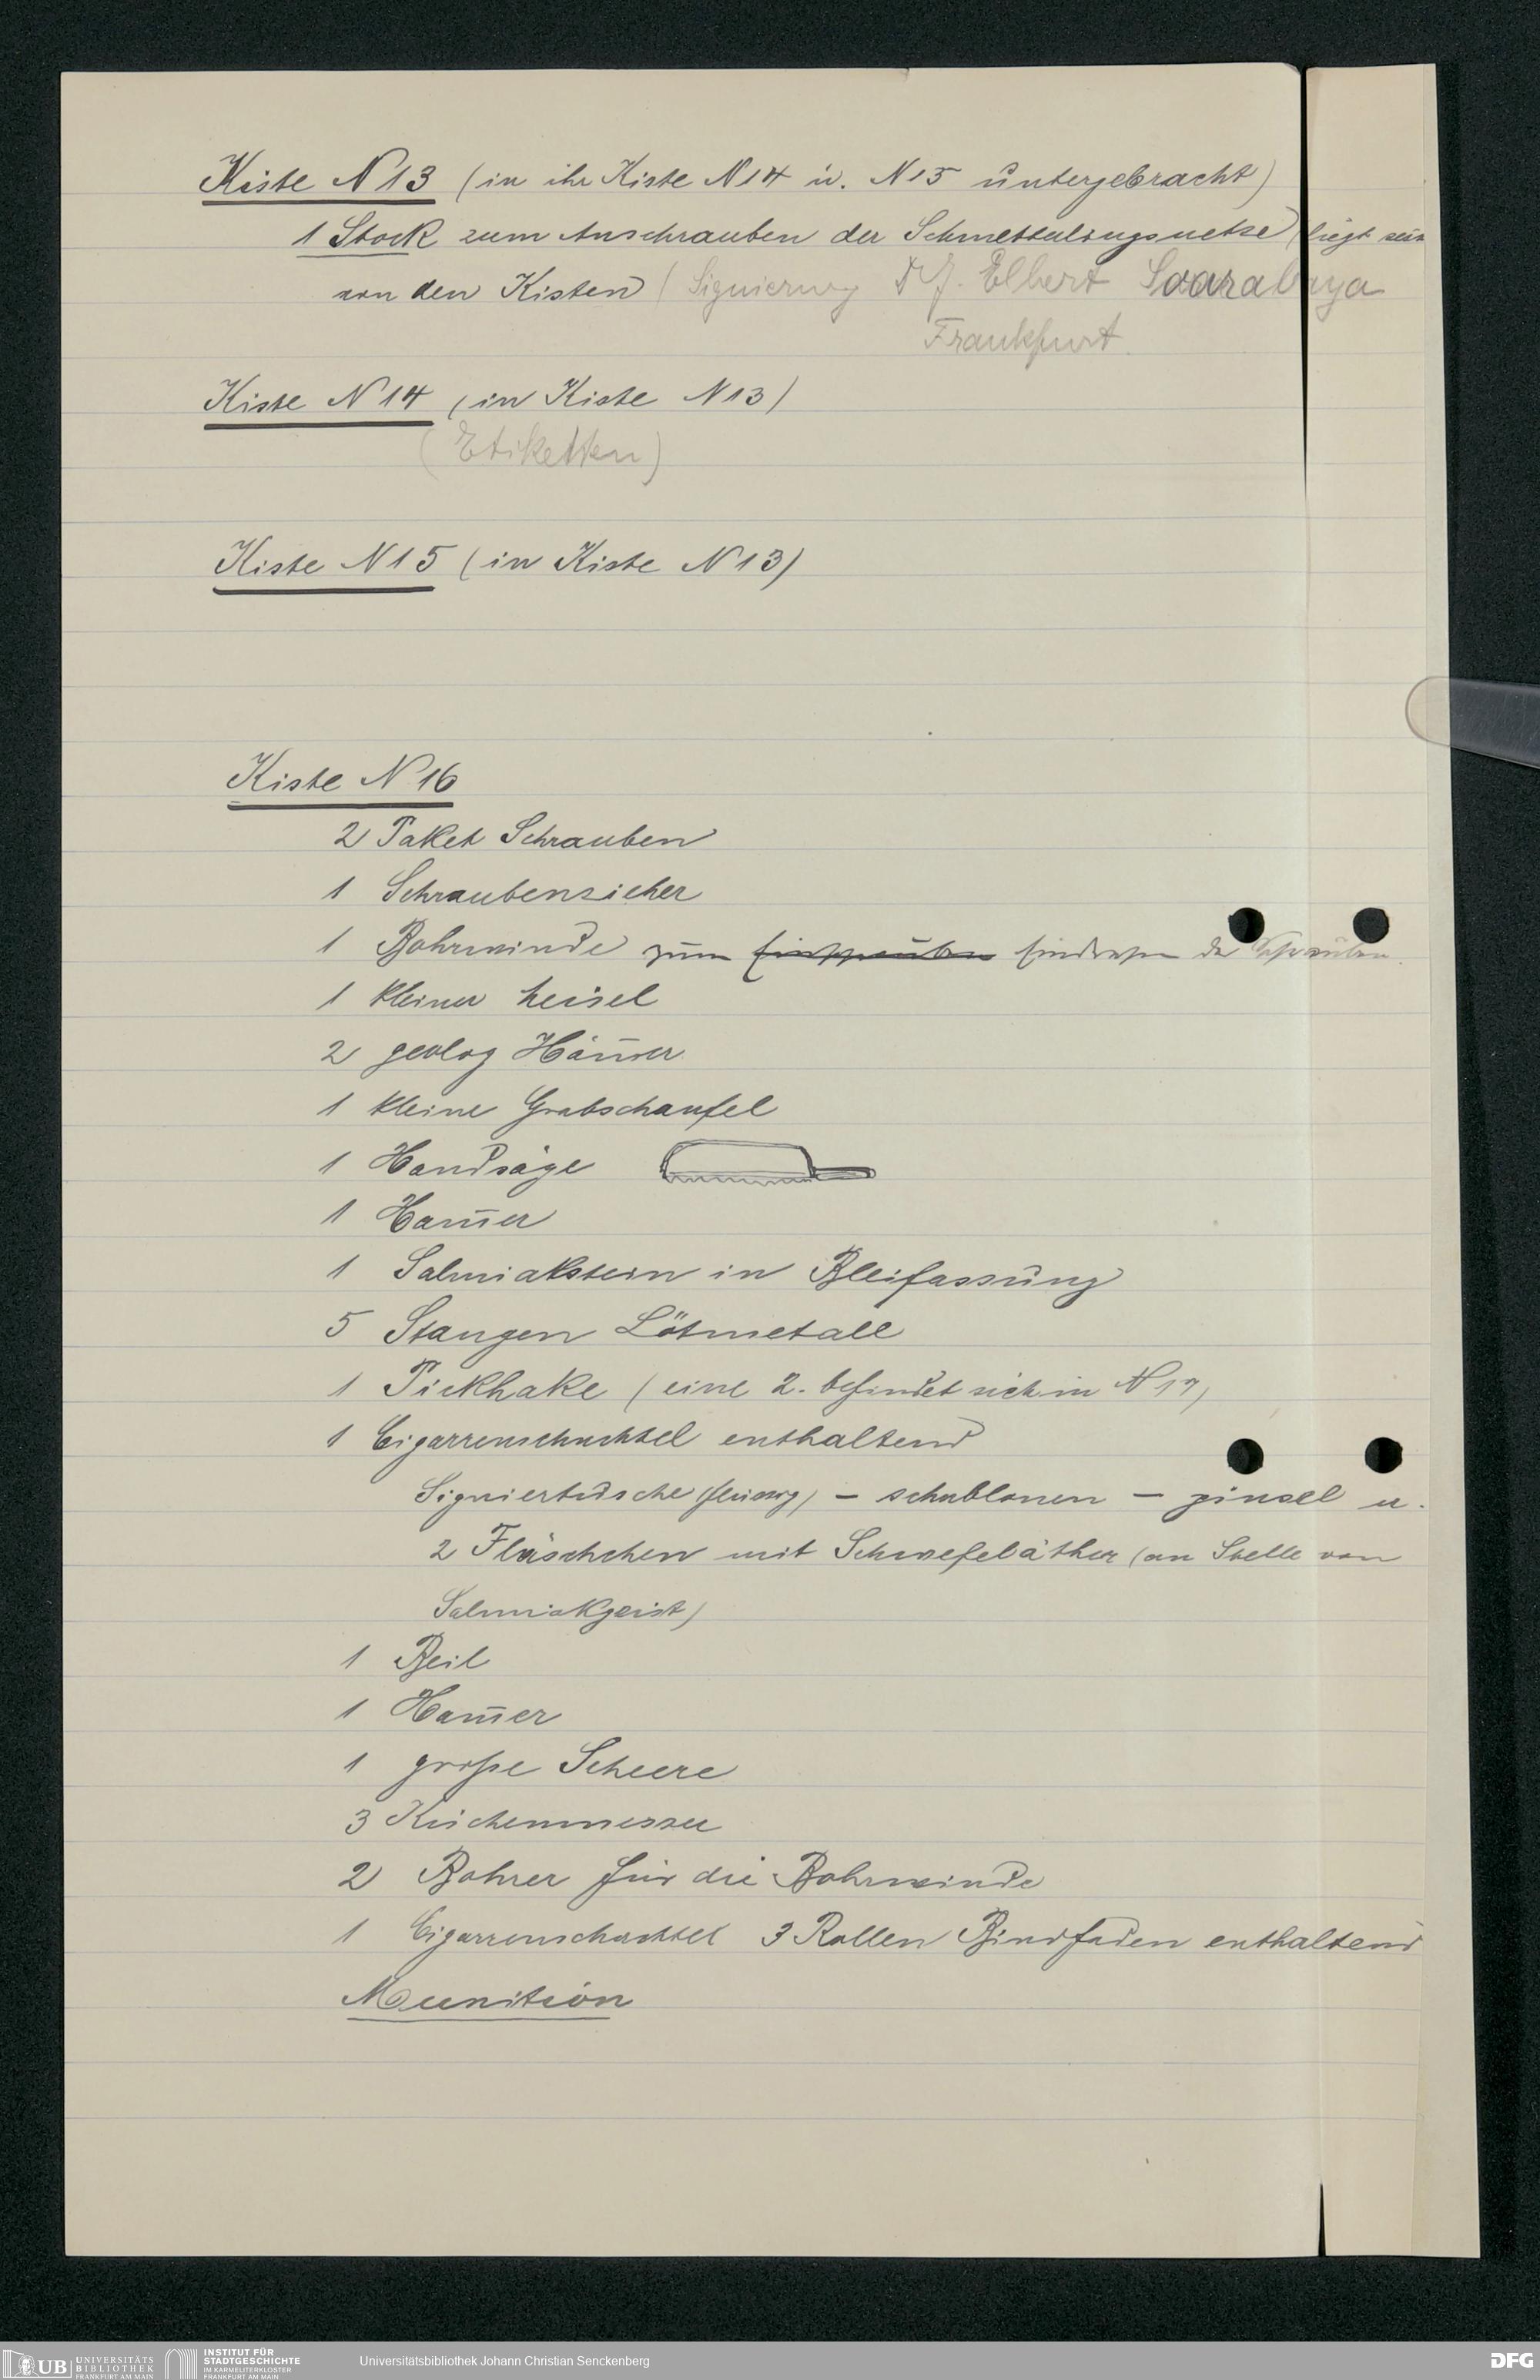 Kiste N 13 (in ihr Kiste N 14 u. N 15 untergebracht)
1 Stock zum Anschrauben der Schmetterlingsnetze (liegt
von den Kisten (Signierung Dr J. Elbert Soarabaya
Frankfurt
Kiste N 14 (in Kiste N 13)
(Etiketten)
Kiste N 15 (in Kiste N 13)
Kiste N 16
2 Paket Schrauben
1 Schraubenzieher
1 Bohrwinde zum Eindrehen der Schrauben.
1 kleiner Meisel
2 geolog Häm̄er
1 kleine Grabschaufel
1 Handsäge
1 Ham̄er
1 Salmiakstein in Bleifassung
5 Stangen Lötmetall
1 Pickhake (eine 2. befindet sich in N 17)
1 Cigarrenschachtel enthaltend
Signiertusche (flüssig) – schablonen – pinsel u.
2 Fläschchen mit Schwefeläther (an Stelle von
Salmiakgeist)
1 Beil
1 Ham̄er
1 große Scheere
3 Küchenmesser
2 Bohrer für die Bohrwinde
1 Cigarrenschachtel 3 Rollen Bindfaden enthaltend
Munition
UB UNIVERSITÄTS BIBLIOTHEK FRANKFURT AM MAIN
INSTITUT FÜR STADTGESCHICHTE IM KARMELITERKLOSTER FRANKFURT AM MAIN
Universitätsbibliothek Johann Christian Senckenberg
DFG